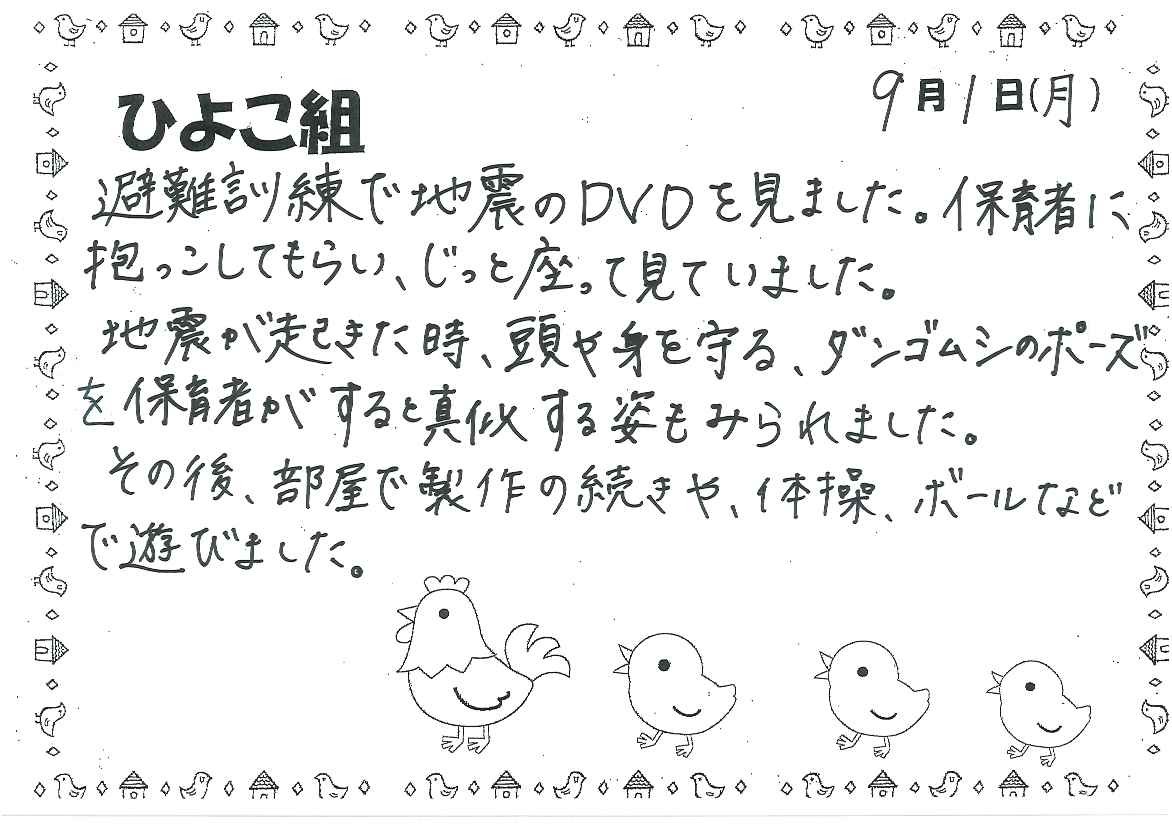 ひよこ組
9月1日(月)
避難訓練で地震のDVDを見ました。保育者に
抱っこしてもらい、じっと座って見ていました。
地震が起きた時、頭や身を守る、ダンゴムシのポーズ
を保育者がすると真似する姿もみられました。
その後、部屋で製作の続きや、体操、ボールなど
で遊びました。